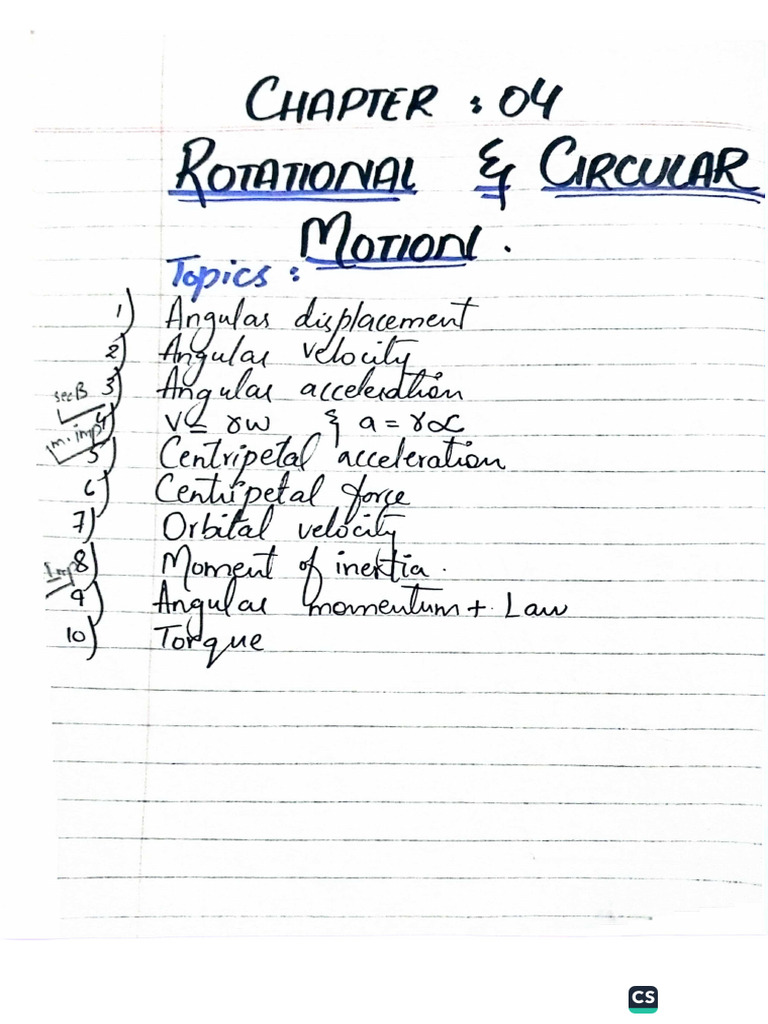 CHAPTER : 04
ROTATIONAL & CIRCULAR
MOTION.
Topics :
1) Angular displacement
2) Angular velocity
sec B 3) Angular acceleration
m. imp 4) v = rω & a = rα
5) Centripetal acceleration
6) Centripetal force
7) Orbital velocity
Imp 8) Moment of inertia.
9) Angular momentum + Law
10) Torque
CS